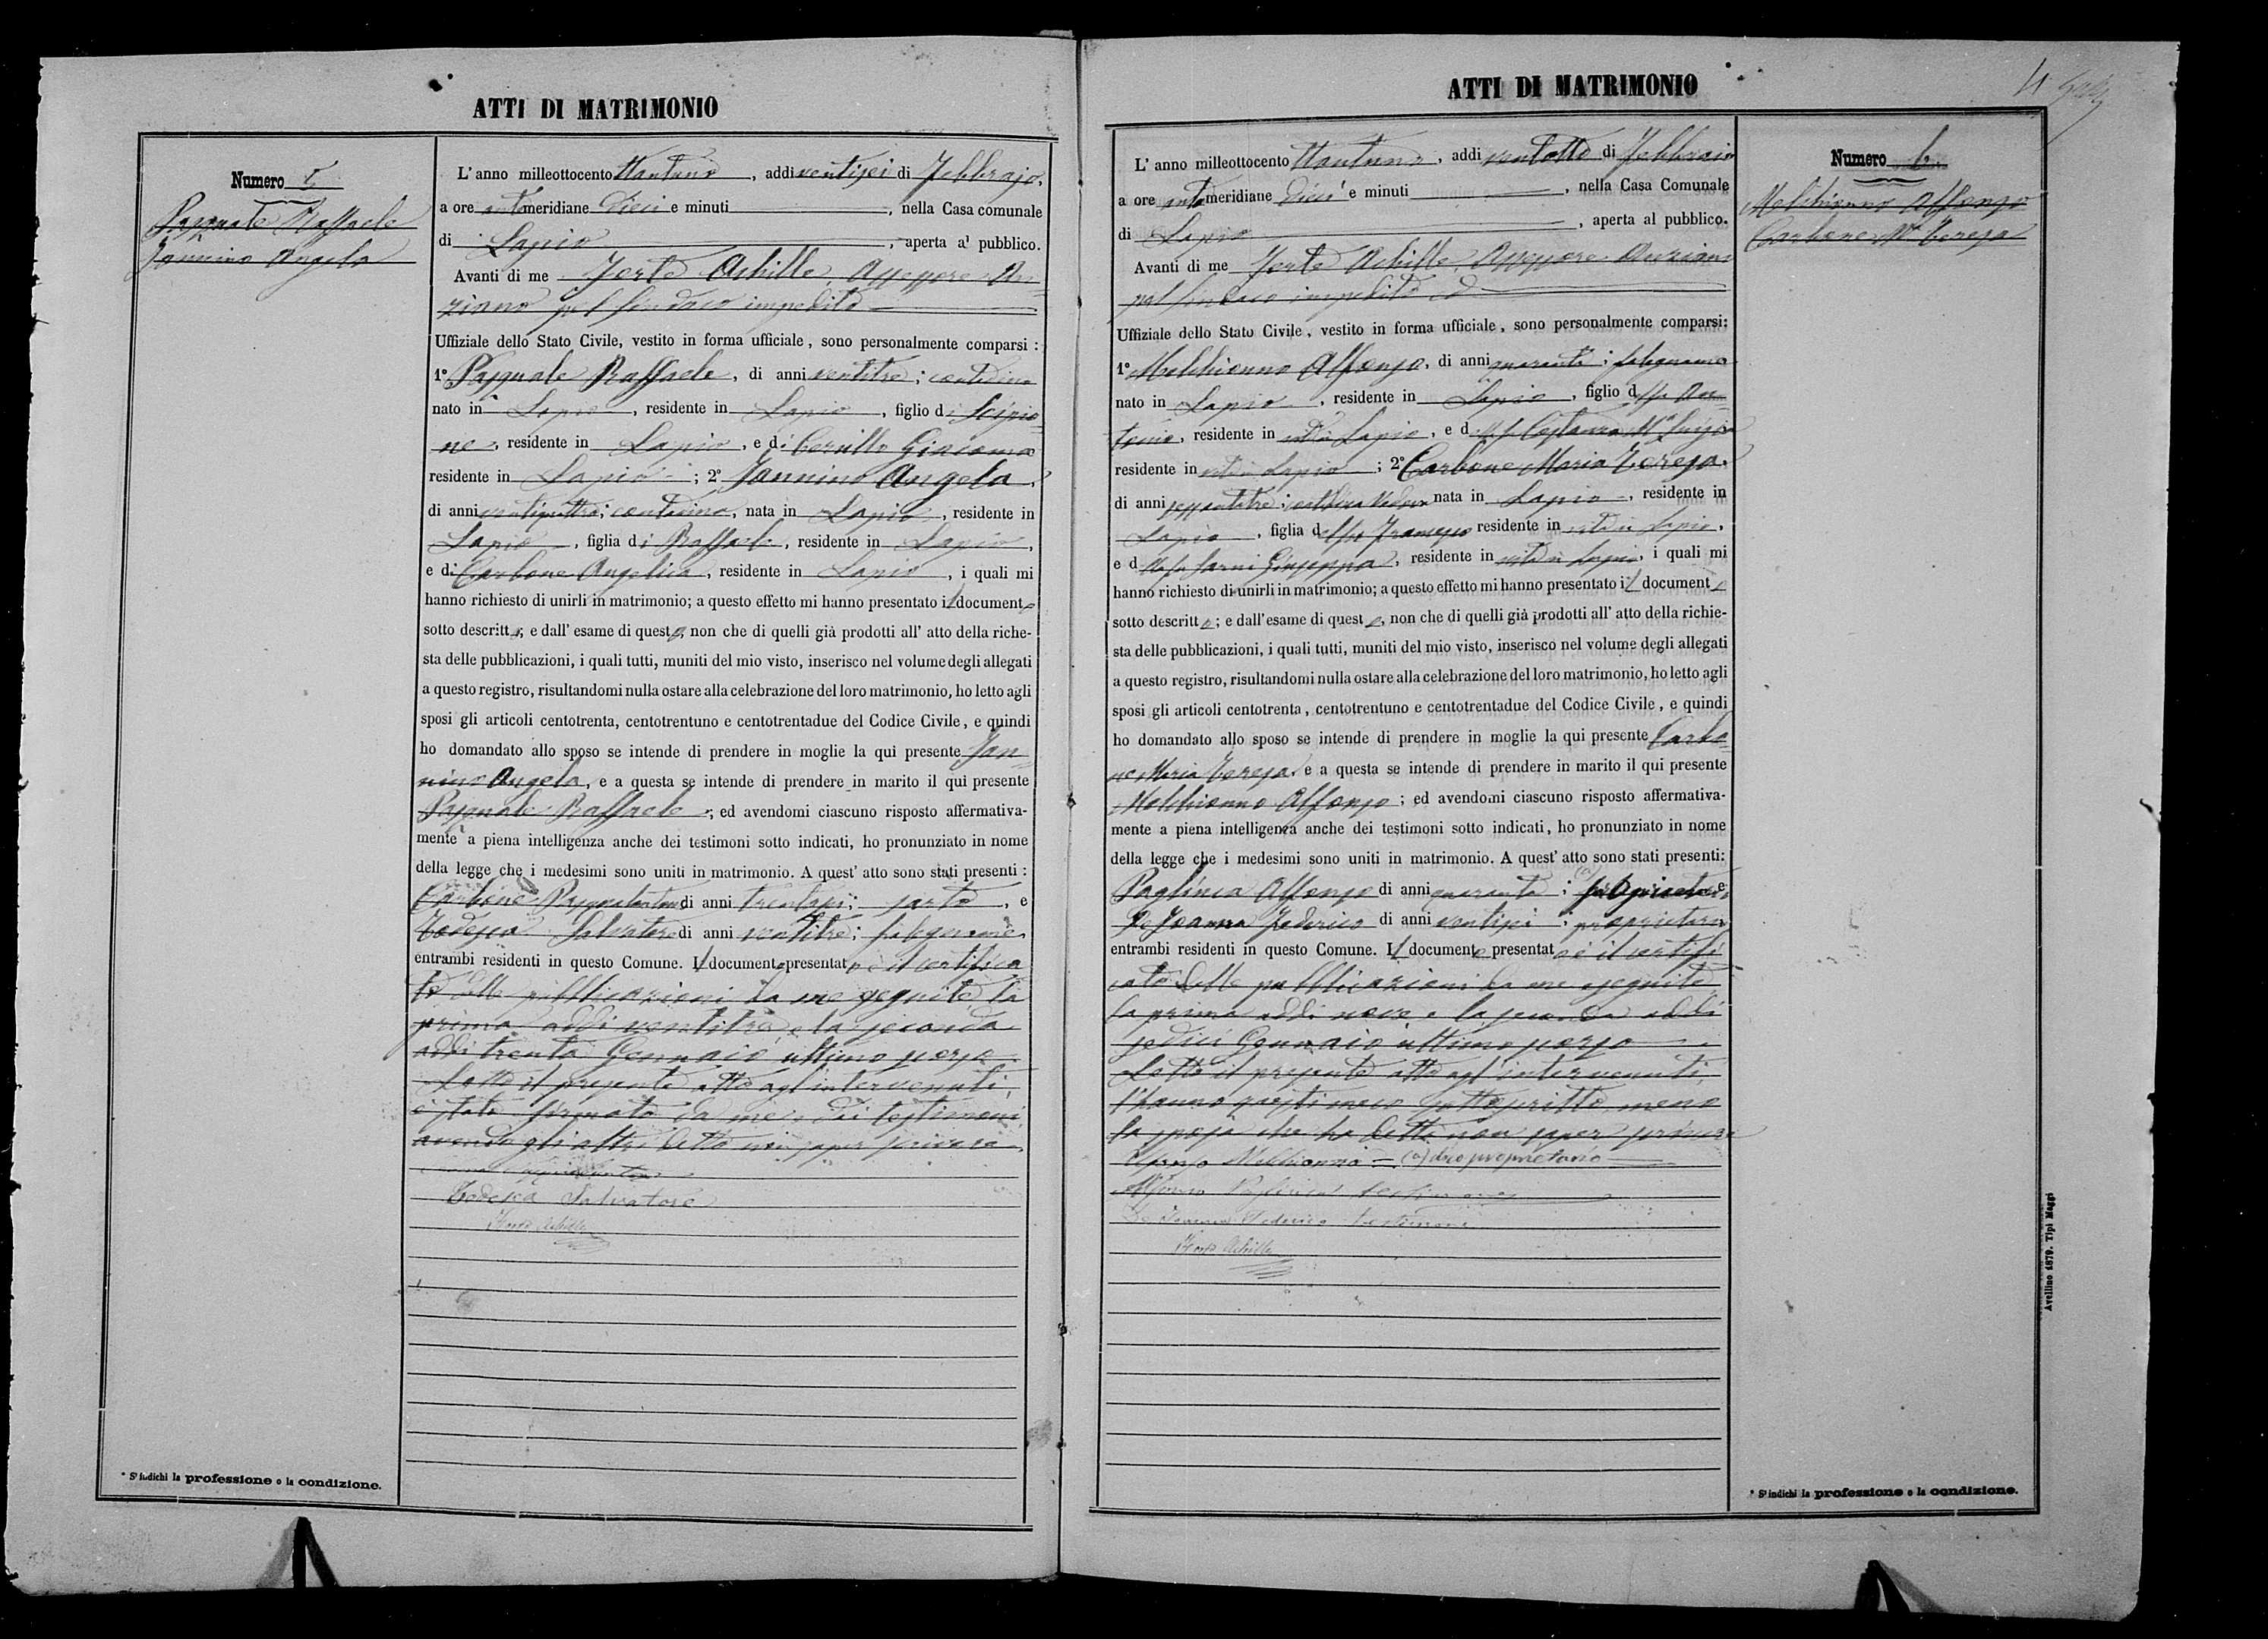 ATTI DI MATRIMONIO
Numero 5
Pasquale Raffaele
Jannino Angela
L'anno milleottocento ttantuno, addi ventisei di Febbrajo,
a ore antimeridiane dieci e minuti, nella Casa comunale
di Lapio, aperta al pubblico.
Avanti di me Forte Achille, Assessore An=
ziano pel Sindaco impedito
Uffiziale dello Stato Civile, vestito in forma ufficiale, sono personalmente comparsi:
1º Pasquale Raffaele, di anni ventitre; contadino
nato in Lapio, residente in Lapio, figlio di Scipio=
ne, residente in Lapio, e di Cerullo Giacoma
residente in Lapio; 2º Jannino Angela,
di anni ventiquattro; contadina, nata in Lapio, residente in
Lapio, figlia di Raffaele, residente in Lapio,
e di Carbone Angelica, residente in Lapio, i quali mi
hanno richiesto di unirli in matrimonio; a questo effetto mi hanno presentato il documento
sotto descritto; e dall' esame di questo, non che di quelli già prodotti all' atto della riche-
sta delle pubblicazioni, i quali tutti, muniti del mio visto, inserisco nel volume degli allegati
a questo registro, risultandomi nulla ostare alla celebrazione del loro matrimonio, ho letto agli
sposi gli articoli centotrenta, centotrentuno e centotrentadue del Codice Civile, e quindi
ho domandato allo sposo se intende di prendere in moglie la qui presente Jan=
nino Angela, e a questa se intende di prendere in marito il qui presente
Pasquale Raffaele; ed avendomi ciascuno risposto affermativa-
mente a piena intelligenza anche dei testimoni sotto indicati, ho pronunziato in nome
della legge che i medesimi sono uniti in matrimonio. A quest' atto sono stati presenti:
Carbone di anni trentasei; sarto, e
Todesca Salvatore di anni ventitre; falegname,
entrambi residenti in questo Comune. Il documento presentato è il certifica
to delle pubblicazioni da me eseguite la
prima addi ventitre, e la seconda
addi trenta Gennaio ultimo scorso.
Letto il presente atto agl'intervenuti,
è stato firmato da me e dai testimoni
avendo gli altri detto non saper scrivere.
Todesca Salvatore
Forte Achille
* S'indichi la professione o la condizione.
ATTI DI MATRIMONIO
4
Numero 6.
Melchionno Alfonso
Carbone Mª Teresa
L'anno milleottocento ttantuno, addi ventotto di Febbraio
a ore antimeridiane dieci e minuti, nella Casa Comunale
di Lapio, aperta al pubblico.
Avanti di me Forte Achille, Assessore Anziano
pel Sindaco impedito
Uffiziale dello Stato Civile, vestito in forma ufficiale, sono personalmente comparsi:
1º Melchionno Alfonso, di anni quaranta; falegname
nato in Lapio, residente in Lapio, figlio del fu An=
tonio, residente in vita in Lapio, e della fu Costanza Mª Luigia
residente in vita in Lapio; 2º Carbone Maria Teresa,
di anni ; contadina vedova nata in Lapio, residente in
Lapio, figlia del fu Francesco residente in vita in Lapio,
e della fu Sarni Giuseppa, residente in vita in Lapio, i quali mi
hanno richiesto di unirli in matrimonio; a questo effetto mi hanno presentato il documento
sotto descritto; e dall'esame di questo, non che di quelli già prodotti all' atto della richie-
sta delle pubblicazioni, i quali tutti, muniti del mio visto, inserisco nel volume degli allegati
a questo registro, risultandomi nulla ostare alla celebrazione del loro matrimonio, ho letto agli
sposi gli articoli centotrenta, centotrentuno e centotrentadue del Codice Civile, e quindi
ho domandato allo sposo se intende di prendere in moglie la qui presente Carbo=
ne Maria Teresa, e a questa se intende di prendere in marito il qui presente
Melchionno Alfonso; ed avendomi ciascuno risposto affermativa-
mente a piena intelligenza anche dei testimoni sotto indicati, ho pronunziato in nome
della legge che i medesimi sono uniti in matrimonio. A quest' atto sono stati presenti:
Paglinca Alfonso di anni quaranta; (a) proprietario e
De Joanna Federico di anni ventisei; proprietario
entrambi residenti in questo Comune. Il documento presentato è il certifi
cato delle pubblicazioni da me eseguite
la prima addi nove e la seconda addi
sedici Gennaio ultimo scorso
Letto il presente atto agl'intervenuti,
l'hanno questi meco sottoscritto meno
la sposa che ha detto non saper scrivere
Alfonso Melchionno = (a) dico proprietario
Alfonso Paglinca testimone
De Joanna Federico testimone
Forte Achille
* S'indichi la professione o la condizione.
Avellino 1879. Tipi Maggi